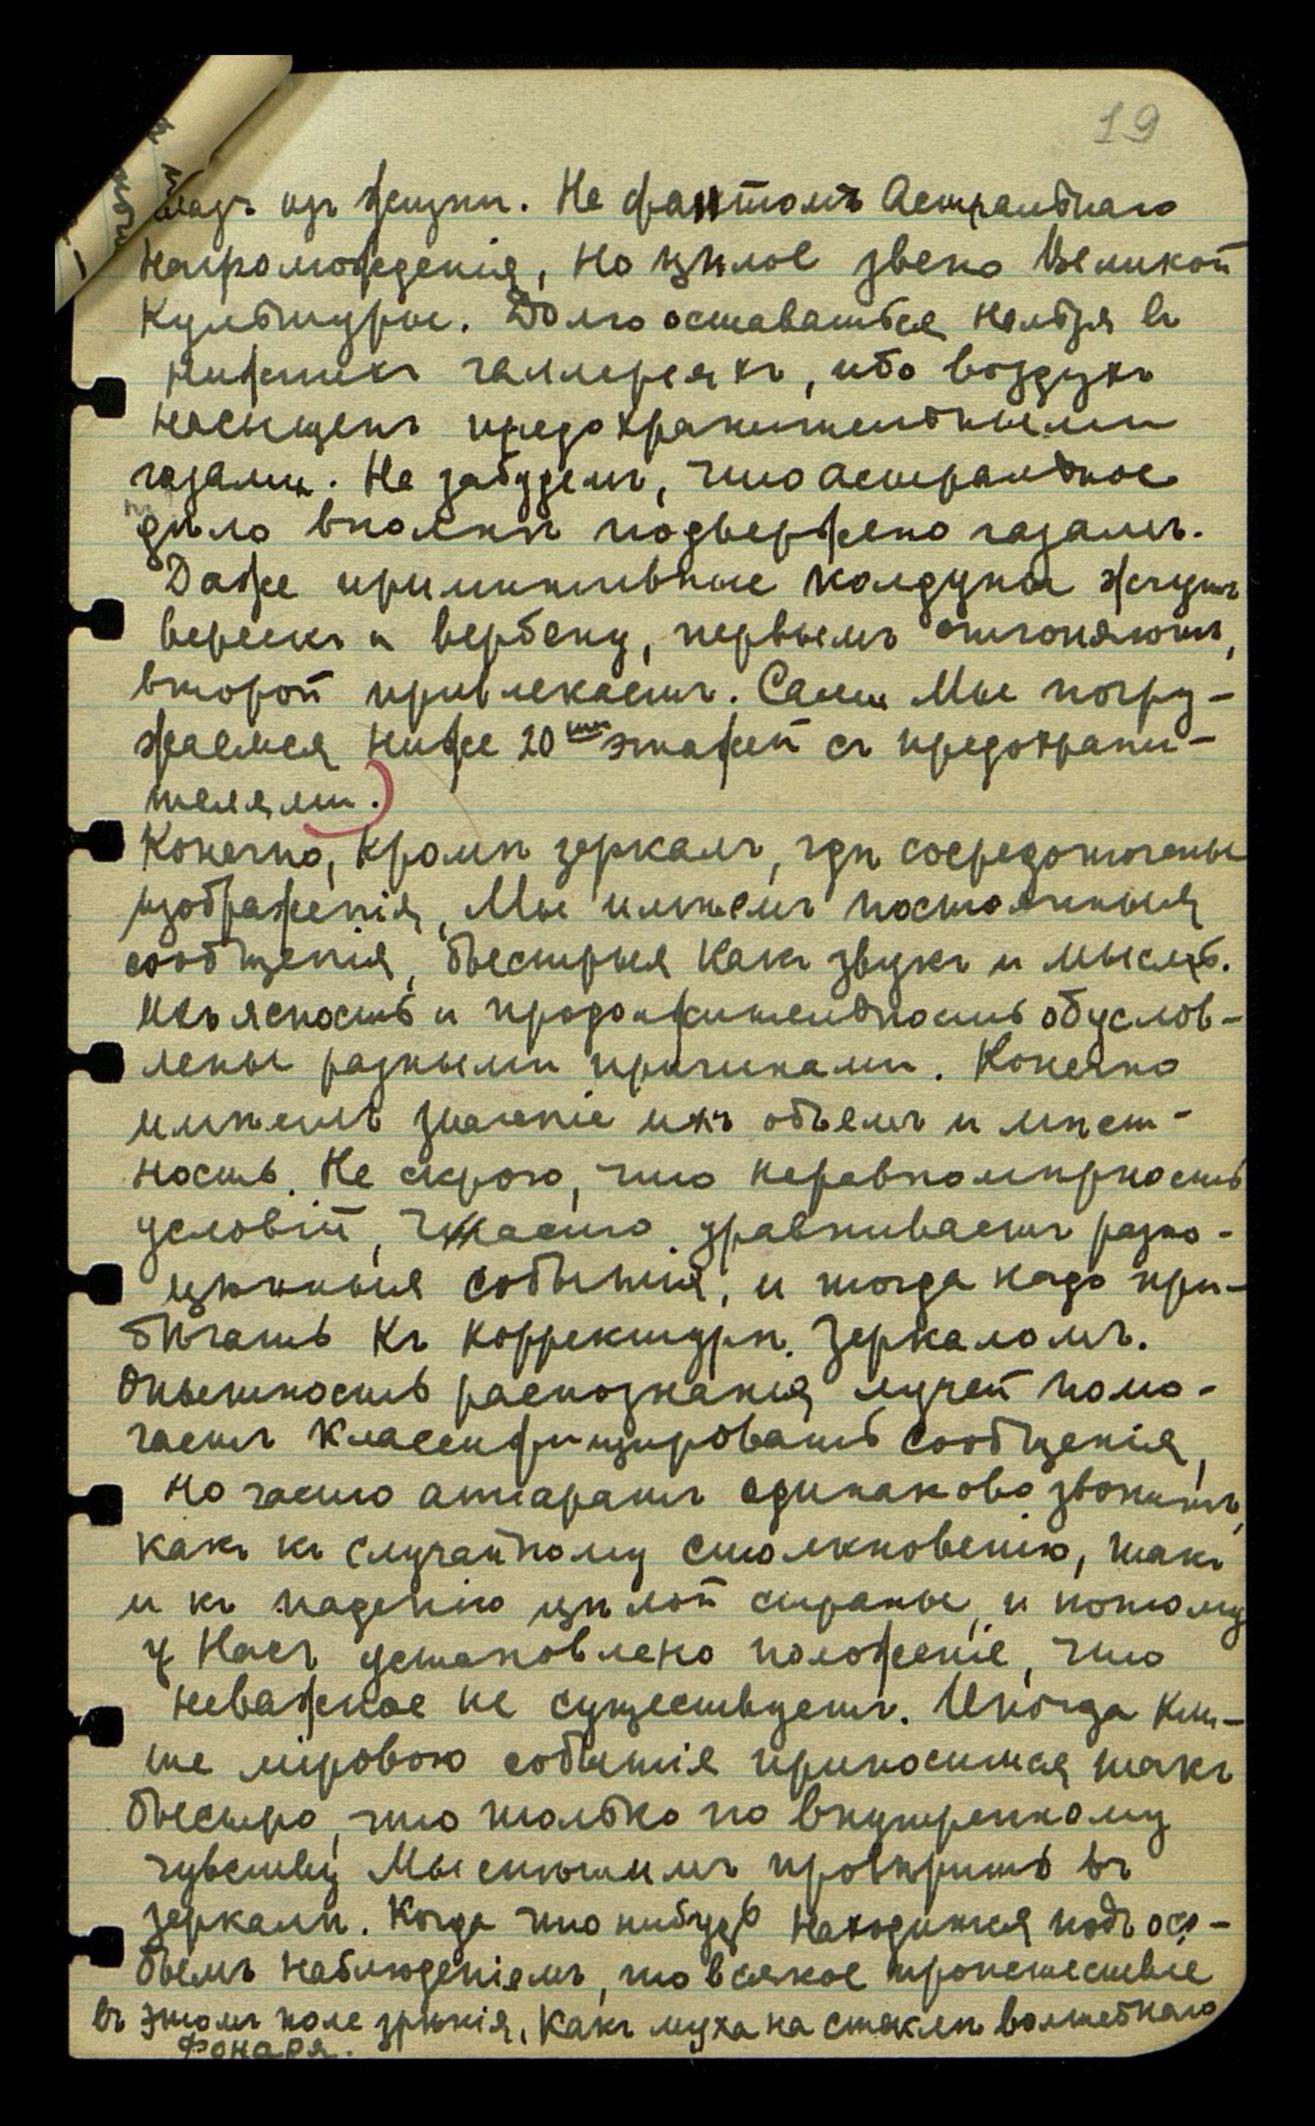 19
изъ жизни. Не фантомъ Астральнаго
Нагроможденія, но цѣлое звено Великой
Культуры. Долго оставаться нельзя въ
нижнихъ галлереяхъ, ибо воздухъ
насыщенъ предохранительными
газами. Не забудемъ, что астральное
тѣло вполнѣ подвержено газамъ.
Даже примитивные колдуны жгутъ
верескъ и вербену, первымъ отгоняютъ,
второй привлекаетъ. Сами Мы погру-
жаемся ниже 20ти этажей съ предохрани-
телями.
Конечно, кромѣ зеркалъ, гдѣ сосредоточены
изображенія, Мы имѣемъ постоянныя
сообщенія, быстрыя какъ звукъ и мысль.
Ихъ ясность и продолжительность обуслов-
лены разными причинами. Конечно
имѣетъ значеніе ихъ объемъ и мѣст-
ность. Не скрою, что неравномѣрность
условій, часто уравниваетъ разно-
цѣнныя событія, и тогда надо при-
бѣгать къ корректурѣ зеркаломъ.
Опытность распознанія лучей помо-
гаетъ классифицировать сообщенія,
но часто аппаратъ одинаково звонитъ,
какъ къ случайному столкновенію, такъ
и къ паденію цѣлой страны, и потому
у Насъ установлено положеніе, что
неважное не существуетъ. Иногда кли-
ше мірового событія приносится такъ
быстро, что только по внутреннему
чувству Мы спѣшимъ провѣрить въ
зеркалѣ. Когда что нибудь находится подъ осо-
бымъ наблюденіемъ, то всякое происшествіе
въ этомъ поле зрѣнія, какъ муха на стеклѣ волшебнаго
фонаря.